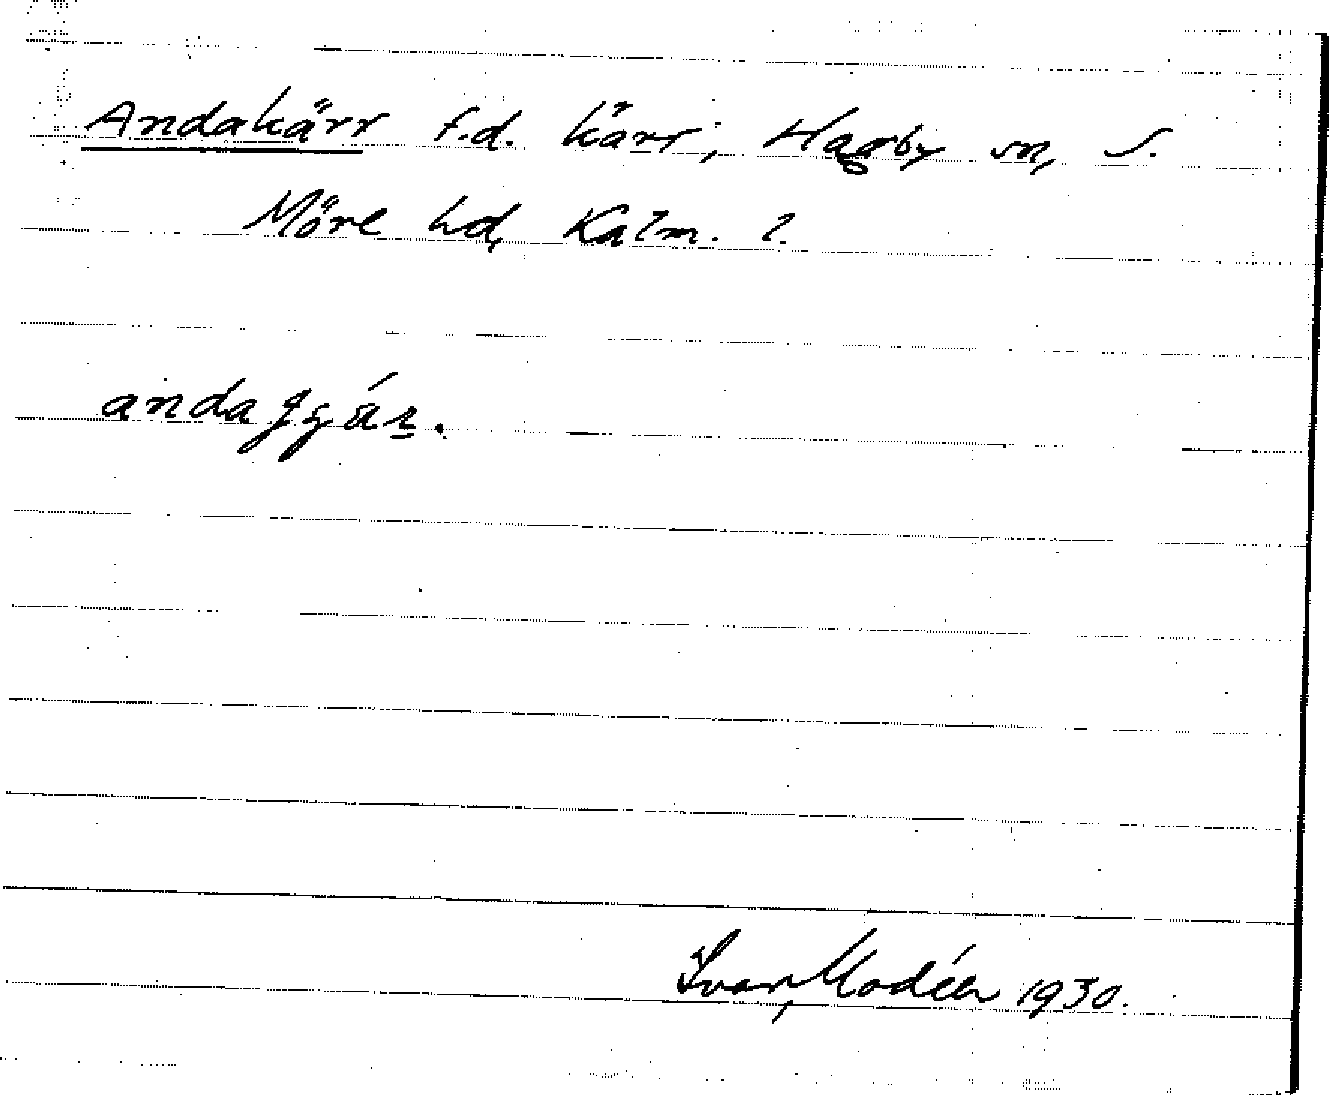 Andakärr f.d. kärr, Hagby sn, S.
Möre hd, Kalm. l.
Ivar Modéer 1930.